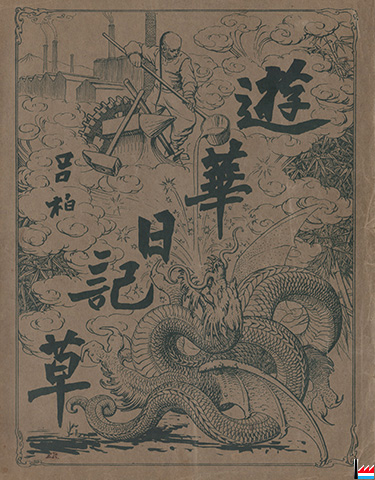 遊華日記草
呂柏